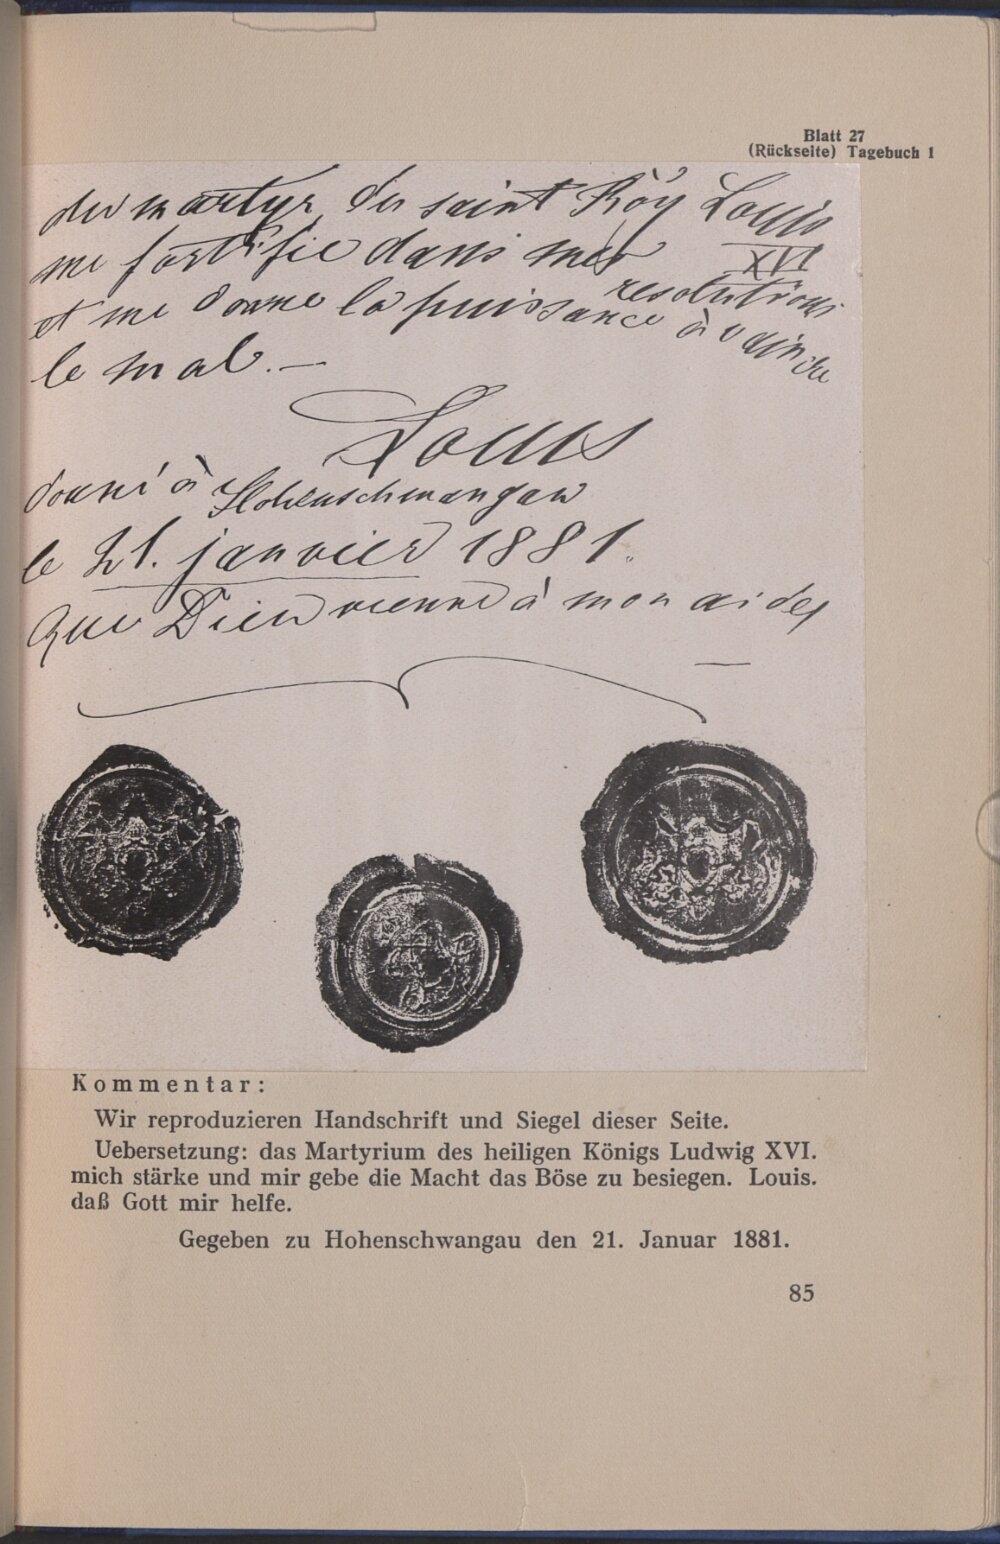 Blatt 27
(Rückseite) Tagebuch 1
du martyr du saint Röy Louis
XVI
me fortifie dans mes resolutions
et me donne la puissance à vaincre
le mal. —
Louis
donné à Hohenschwangau
le 21. janvier 1881.
Que Dieu vienne à mon aide
Kommentar:
Wir reproduzieren Handschrift und Siegel dieser Seite.
Uebersetzung: das Martyrium des heiligen Königs Ludwig XVI.
mich stärke und mir gebe die Macht das Böse zu besiegen. Louis.
daß Gott mir helfe.
Gegeben zu Hohenschwangau den 21. Januar 1881.
85